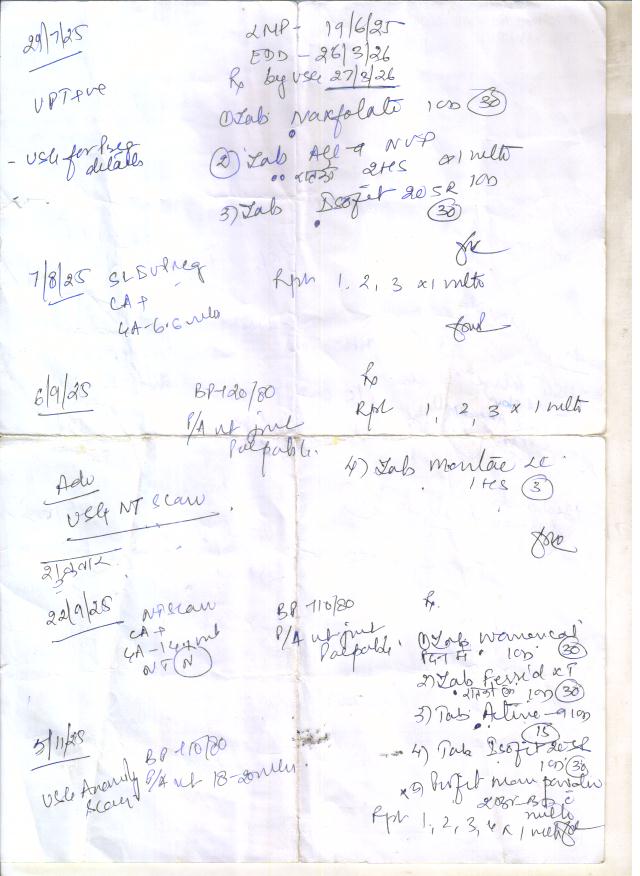 29/7/25
LMP - 19/6/25
EDD - 26/3/26
Rx by USG 27/3/26
UPT +ve
1) Tab Naxfolate 1OD (30)
- USG for Preg details
2) Tab All-9 NVP
रात को 2HS x 1 mth
3) Tab Isofit 20 SR 1OD
(30)
7/8/25
CA +
GA - 6.6 wks
Rpt 1, 2, 3 x 1 mth
6/9/25
BP - 120/80
P/A ut just Palpable.
Rx
Rpt 1, 2, 3 x 1 mth
4) Tab Montac LC
1HS (3)
Adv
USG NT Scan
22/9/25
NT Scan
CA +
NT (N)
BP - 110/80
P/A ut just Palpable.
Rx
1) Tab
दिन में 1OD (30)
2) Tab x T
1OD (30)
3) Tab Active - 9 1OD
(15)
4) Tab Isofit 20 SR
1OD (30)
5/11/25
BP - 110/80
P/A ut 18-20 wks
USG Anamoly Scan
x 5) Profit mom powder
2 BD c milk
Rpt 1, 2, 3, 4 x 1 mth